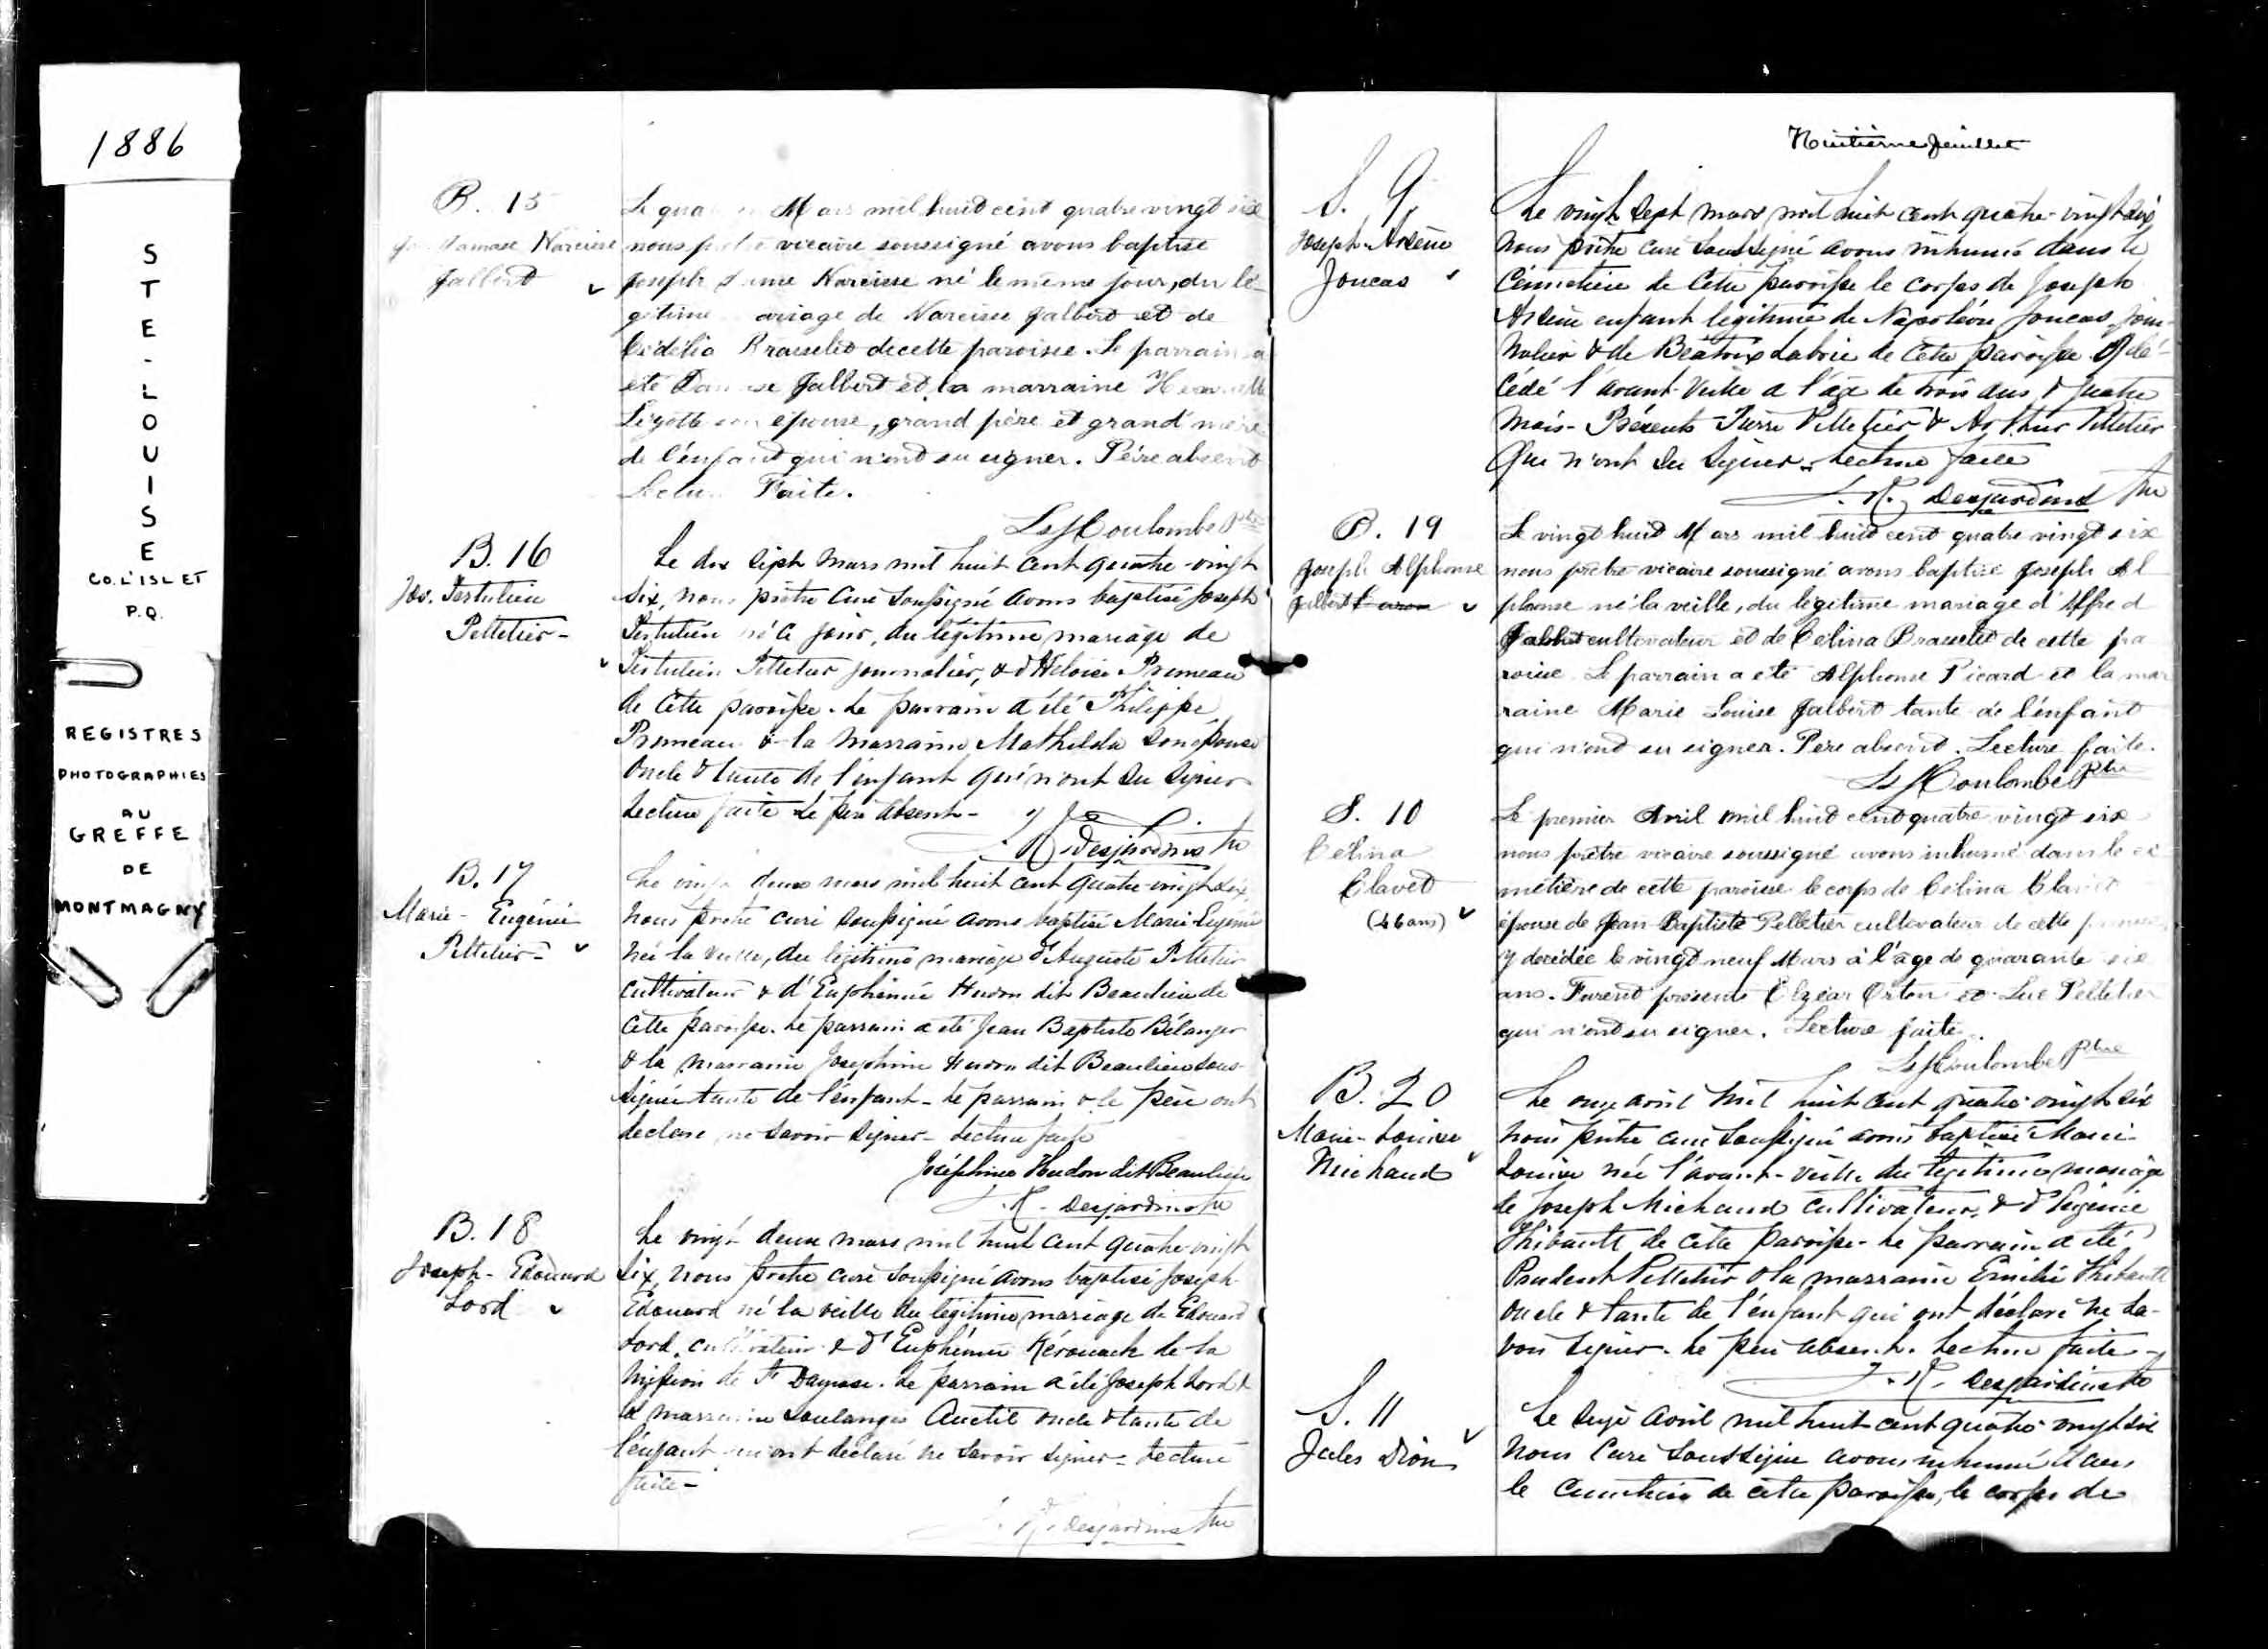 1886
STE-LOUISE
CO. L'ISLET
P.Q.
REGISTRES
PHOTOGRAPHIES
AU
GREFFE
DE
MONTMAGNY
B. 15
Damase Narcisse
Jalbert
Le Mars mil huit cent quatre vingt six
nous prêtre vicaire soussigné avons baptisé
Joseph Narcisse né le même jour, du lé-
gitime mariage de Narcisse Jalbert et de
Bidélia Brasselet de cette paroisse. Le parrain a
été Jalbert et la marraine
Lizotte son épouse, grand père et grand'mère
de l'enfant qui n'ont su signer. Père absent
Lecture Faite.
Ls H Coulombe Ptre
B. 16
Jos. Tertulien
Pelletier-
Le dix sept mars mil huit cent quatre-vingt
six, nous prêtre curé soussigné avons baptisé Joseph
Tertulien né ce jour, du légitime mariage de
Tertulien Pelletier journalier, & d'Héloise Primeau
de cette paroisse. Le parrain a été Philippe
Primeau & la marraine Mathilda son épouse
oncle & tante de l'enfant qui n'ont su signer
Lecture faite le père absent-
Desjardins Ptre
B. 17
Marie-Eugénie
Pelletier-
Le vingt deux mars mil huit cent quatre-vingt six
nous prêtre curé soussigné avons baptisé Marie-Eugénie
née la veille, du légitime mariage d'Auguste Pelletier
cultivateur & d'Euphémie Hudon dit Beaulieu de
cette paroisse. Le parrain a été Jean Baptiste Bélanger
& la marraine Josephine Hudon dit Beaulieu sous-
signée tante de l'enfant - le parrain & le père ont
declaré ne savoir signer - Lecture faite
Joséphine Hudon dit Beaulieu
Desjardins Ptre
B. 18
Joseph-Edouard
Lord
Le vingt deux mars mil huit cent quatre-vingt
six, nous prêtre curé soussigné avons baptisé Joseph
Edouard né la veille du légitime mariage de Edouard
Lord, cultivateur & d'Euphémie Kérouack de la
mission de St Damase. Le parrain a été Joseph Lord &
la marraine Soulange Anctil oncle & tante de
l'enfant qui ont déclaré ne savoir signer - Lecture
faite-
Desjardins Ptre
Huitième feuillet
S. 9
Joseph-Arsène
Joncas
Le vingt sept mars mil huit cent quatre-vingt six
nous prêtre curé soussigné avons inhumé dans le
cimetière de cette paroisse le corps de Joseph
Arsène enfant légitime de Napoléon Joncas, jour-
nalier & de Béatrix Labrie de cette paroisse y dé-
cédé l'avant-veille a l'age de trois ans & quatre
mois - Présents Pierre Pelletier & Arthur Pelletier
qui n'ont su signer - Lecture faite
Desjardins Ptre
B. 19
Joseph Alphonse
Jalbert
Le vingt huit Mars mil huit cent quatre vingt six
nous prêtre vicaire soussigné avons baptisé Joseph Al
phonse né la veille, du légitime mariage d'Alfred
Jalbert cultivateur et de Célina Brasselet de cette pa
roisse. Le parrain a été Alphonse Picard et la mar
raine Marie Louise Jalbert tante de l'enfant
qui n'ont su signer. Père absent. Lecture faite.
Ls H Coulombe Ptre
S. 10
Celina
Clavet
(46 ans)
Le premier Avril mil huit cent quatre vingt six
nous prêtre vicaire soussigné avons inhumé dans le ci
metière de cette paroisse le corps de Celina Clavet
épouse de Jean Baptiste Pelletier cultivateur de cette paroisse,
y decédée le vingt neuf Mars à l'âge de quarante six
ans. Furent présents Elzéar Orton et Luc Pelletier
qui n'ont su signer. Lecture faite.
Ls H Coulombe Ptre
B. 20
Marie-Louise
Michaud
Le onze avril mil huit cent quatre-vingt six
nous prêtre curé soussigné avons baptisé Marie-
Louise née l'avant-veille du légitime mariage
de Joseph Michaud cultivateur, & d'Eugénie
Thibault de cette paroisse - Le parrain a été
Prudent Pelletier & la marraine Emilie Thibault
oncle & tante de l'enfant qui ont déclaré ne sa-
voir signer. Le père absent. Lecture faite-
Desjardins Ptre
S. 11
Jules Dion
Le avril mil huit cent quatre-vingt six
nous curé soussigné avons inhumé dans
le cimetière de cette paroisse, le corps de